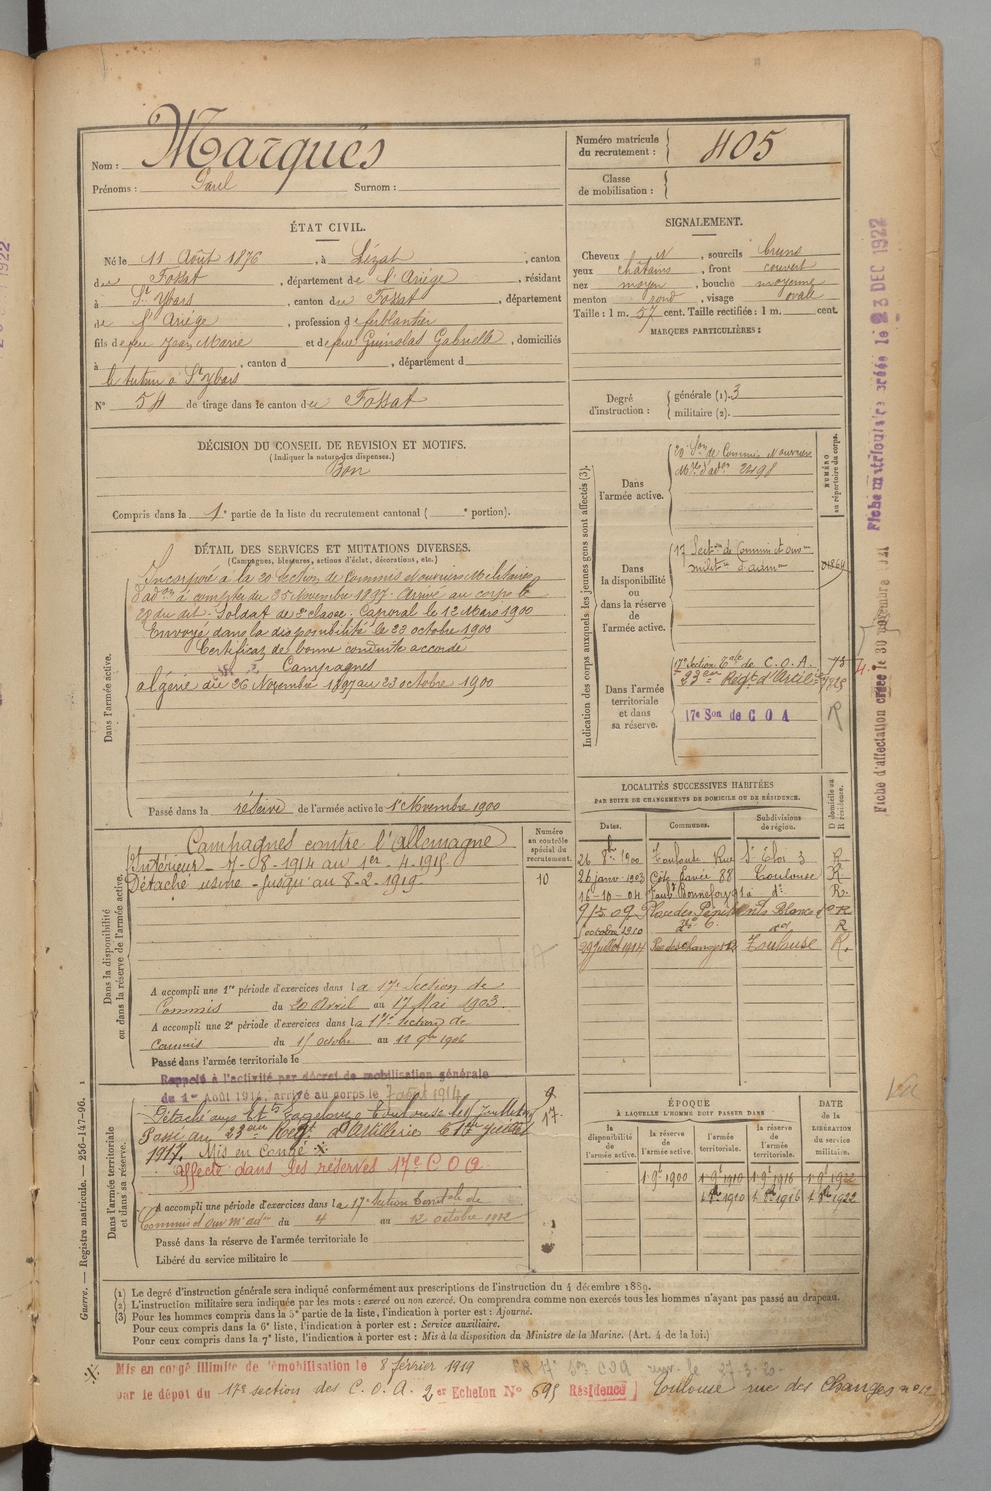 Nom : Marquès
Prénoms : Paul Surnom :
Numéro matricule du recrutement : 405
Classe de mobilisation :
ÉTAT CIVIL.
Né le 11 Août 1876, à Lézat, canton
du Fossat, département de l'Ariège, résidant
à St Ybars, canton du Fossat, département
de l'Ariège, profession de ferblantier
fils de feu Jean Marie et de feue Gabrielle, domiciliés
à , canton d , département d
le tuteur à St Ybars
N° 54 de tirage dans le canton du Fossat
SIGNALEMENT.
Cheveux et, sourcils bruns
yeux châtains, front couvert
nez moyen, bouche moyenne
menton rond, visage ovale
Taille : 1 m. 57 cent. Taille rectifiée : 1 m. cent.
MARQUES PARTICULIÈRES :
Degré d'instruction : générale (1). 3
militaire (2).
DÉCISION DU CONSEIL DE REVISION ET MOTIFS.
(Indiquer la nature des dispenses.)
Bon
Compris dans la 1e partie de la liste du recrutement cantonal ( e portion).
DÉTAIL DES SERVICES ET MUTATIONS DIVERSES.
(Campagnes, blessures, actions d'éclat, décorations, etc.)
Dans l'armée active.
Incorporé à la 20 Section de Commis & ouvriers Militaires
d'adon à compter du 25 Novembre 1897. Arrivé au corps le
28 du dit. Soldat de 2e classe. Caporal le 12 Mars 1900
Envoyé dans la disponibilité le 23 octobre 1900
Certificat de bonne conduite accordé
Campagnes
algérie du 26 Novembre 1897 au 23 octobre 1900
Passé dans la réserve de l'armée active le 1er Novembre 1900
Indication des corps auxquels les jeunes gens sont affectés (3).
NUMÉRO au répertoire du corps.
Dans l'armée active.
20e Son de Commis & ouvriers
2498
Dans la disponibilité ou dans la réserve de l'armée active.
17 Section de Commis et ouv
milit d'admon
Dans l'armée territoriale et dans sa réserve.
17e Section Tale de C. O. A. 73
23em Régt d'Artie
17e Son de C O A R
Dans la disponibilité ou dans la réserve de l'armée active.
Campagnes contre l'Allemagne
Intérieur - 7-08-1914 au 1er-4-1915
Détaché usine - jusqu'au 8-2-1919
Numéro au contrôle spécial du recrutement.
10
A accompli une 1re période d'exercices dans la 17e Section de
Commis du 20 Avril au 17 Mai 1903.
A accompli une 2e période d'exercices dans la 17e Section de
Commis du 15 octobre au 11 9bre 1906
Passé dans l'armée territoriale le
LOCALITÉS SUCCESSIVES HABITÉES
PAR SUITE DE CHANGEMENTS DE DOMICILE OU DE RÉSIDENCE.
Dates. Communes. Subdivisions de région. D domicile ou R résidence.
26 8bre 1900 Toulouse Rue St Eloi 3 R
26 janv 1903 Côte Pavée 88 Toulouse R
16-10-04 Faubg Bonnefoy 91 a do R
octobre 1910 R
29 juillet 1914 Rue des changes 12 Toulouse R.
Dans l'armée territoriale et dans sa réserve.
Rappelé à l'activité par décret de mobilisation générale
du 1er Août 1914, arrivé au corps le 7 août 1914
Passé au 23em Régt d'Artillerie le 1er Juillet
1917. Mis en congé X
affecté dans les réserves 17e C O A
A accompli une période d'exercices dans la 17e Section territale de
Commis et ouv m adon du 4 au 12 octobre 1912
Passé dans la réserve de l'armée territoriale le
Libéré du service militaire le
9
17
ÉPOQUE
À LAQUELLE L'HOMME DOIT PASSER DANS
la disponibilité de l'armée active. la réserve de l'armée active. l'armée territoriale. la réserve de l'armée territoriale.
DATE de la LIBÉRATION du service militaire.
1. 9bre 1900 1. 9bre 1910 1. 9bre 1916 1. 9bre 1922
1. 8bre 1910 1. 8bre 1916 1. 8bre 1922
(1) Le degré d'instruction générale sera indiqué conformément aux prescriptions de l'instruction du 4 décembre 1889.
(2) L'instruction militaire sera indiquée par les mots : exercé ou non exercé. On comprendra comme non exercés tous les hommes n'ayant pas passé au drapeau.
(3) Pour les hommes compris dans la 5e partie de la liste, l'indication à porter est : Ajourné.
Pour ceux compris dans la 6e liste, l'indication à porter est : Service auxiliaire.
Pour ceux compris dans la 7e liste, l'indication à porter est : Mis à la disposition du Ministre de la Marine. (Art. 4 de la loi.)
X Mis en congé illimité de démobilisation le 8 février 1919
par le dépôt du 17e section des C. O. A. 2er Echelon N° 695 Résidence Toulouse rue des Changes n° 12
Guerre. — Registre matricule. — 256-147-96.
Fiche matriculaire créée le 23 DEC 1922
Fiche d'affectation créée le 30 novembre